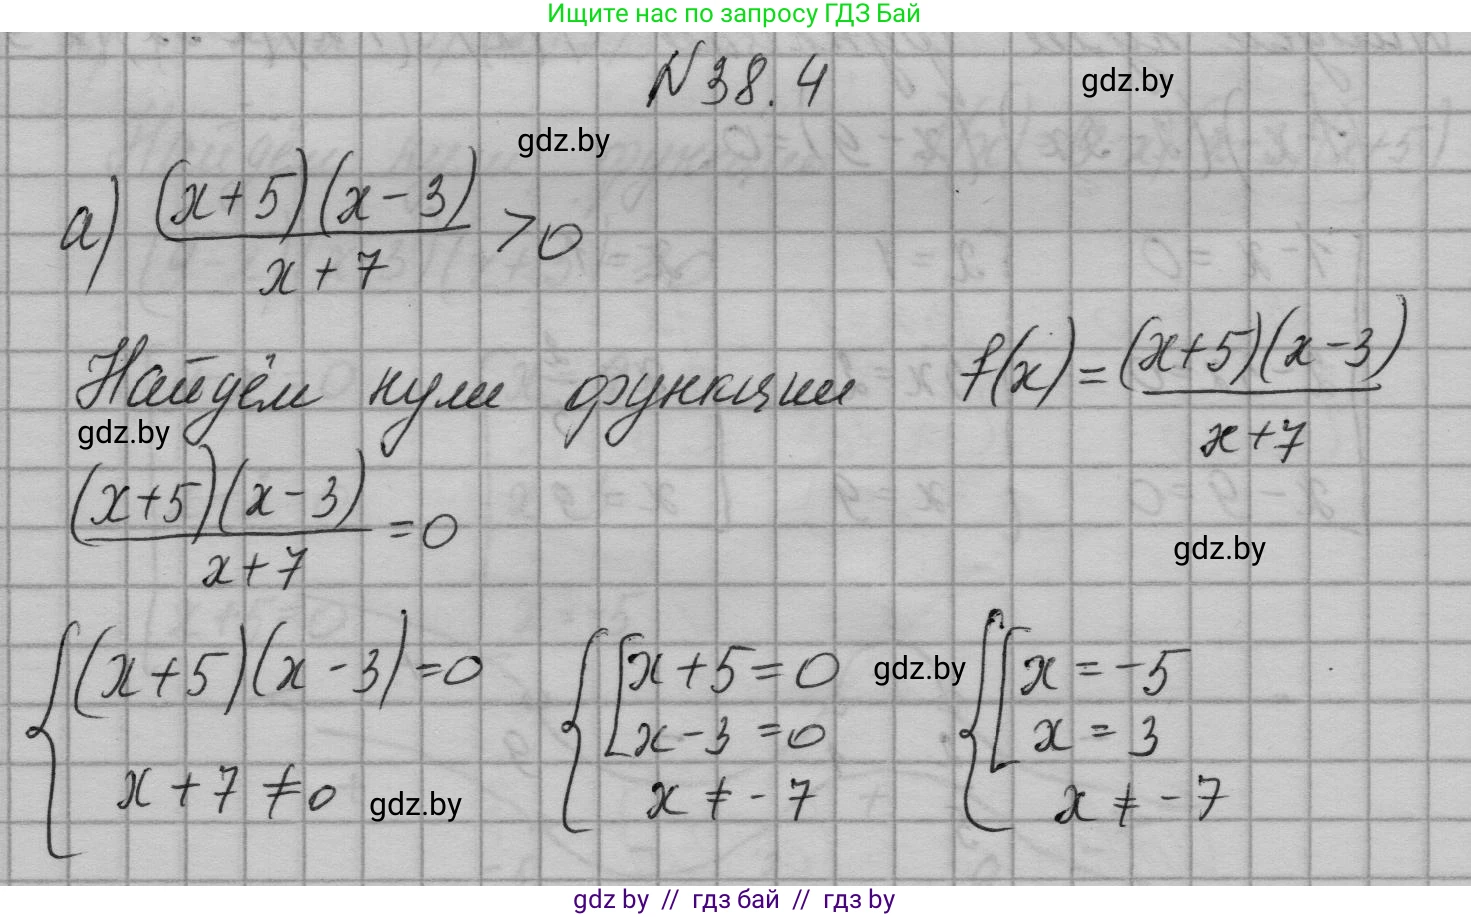 Ищите нас по запросу ГДЗ Бай
N 38.4
gdz.by
gdz.by
а) (x+5)(x-3) / x+7 > 0
Найдём нули функции f(x) = (x+5)(x-3) / x+7
gdz.by
(x+5)(x-3) / x+7 = 0
gdz.by
{ (x+5)(x-3)=0 { [ x+5=0 gdz.by { [ x=-5
x-3=0 x=3
x+7≠0 gdz.by x≠-7 x≠-7
gdz by // гдз бай // гдз by